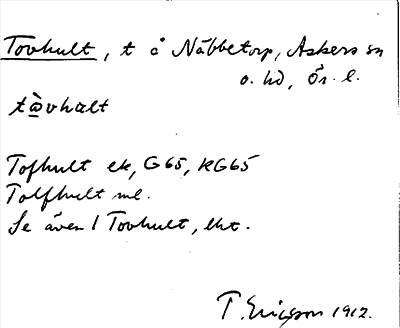 Tovhult, t å Näbbetorp, Askers sn
o. hd, Ör. l.
tàvhalt
Tofhult ek, G65, RG65
Tolfhult ml.
Se även 1 Tovhult, lht.
T. Ericson 1912.